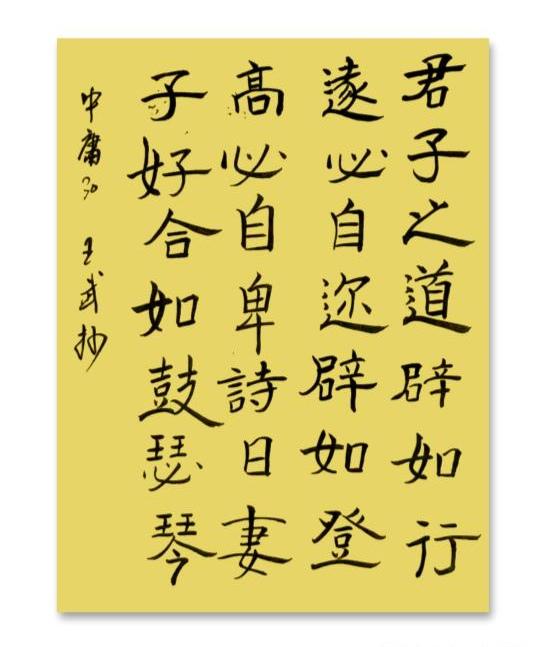 君子之道辟如行
遠必自迩辟如登
高必自卑詩日妻
子好合如鼓瑟琴
中庸30 王武抄